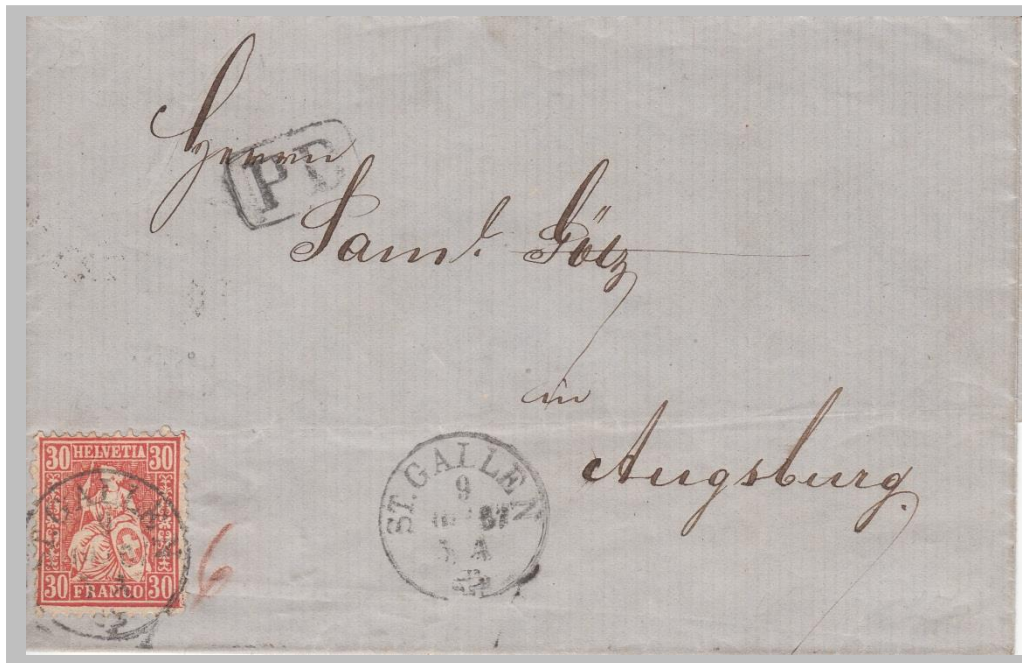 Herrn
PD
Saml. Götz
in
Augsburg.
30 HELVETIA 30
30 FRANCO 30
6
ST. GALLEN
9
67
A
ST. GALLEN